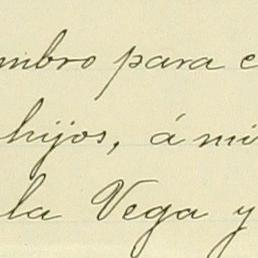 mbro para e
hijos, á mi
la Vega y